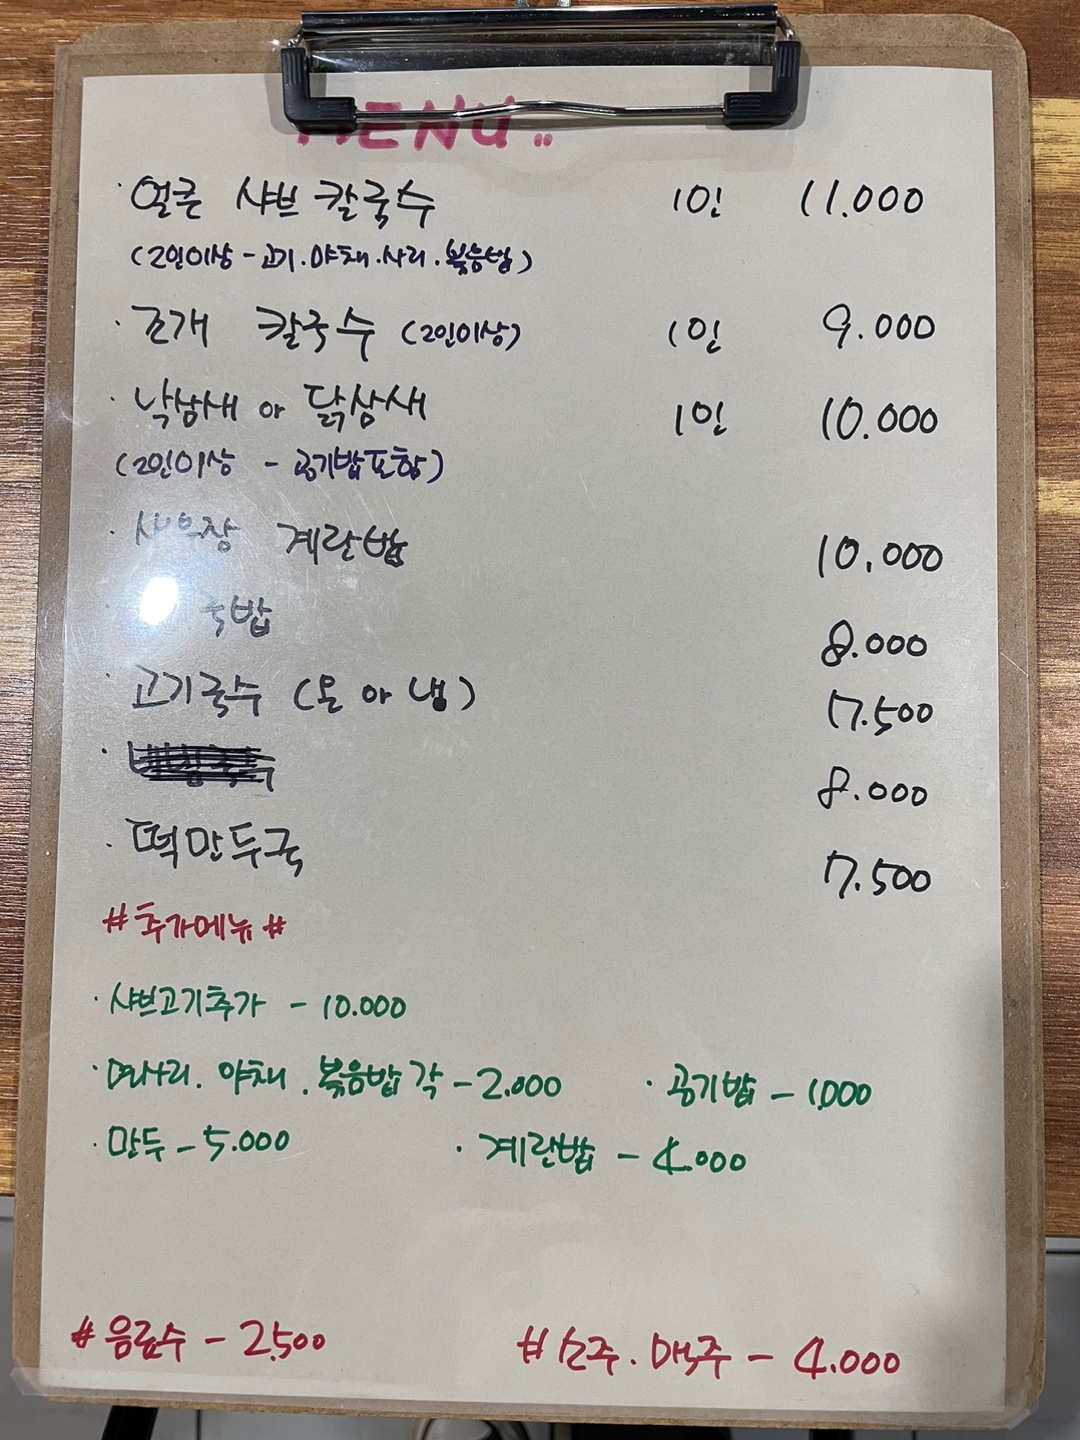 MENU..
· 얼큰 샤브 칼국수 1인 11.000
(2인이상 - 고기.야채.사리.볶음밥)
· 조개 칼국수 (2인이상) 1인 9.000
· 낙삼새 or 닭삼새 1인 10.000
(2인이상 - 공기밥포함)
· 새우장 계란밥 10.000
국밥 8.000
· 고기국수 (온 or 냉) 7.500
· 8.000
· 떡만두국 7.500
#추가메뉴#
· 샤브고기추가 - 10.000
· 면사리. 야채. 볶음밥 각 - 2.000 · 공기밥 - 1000
· 만두 - 5.000 · 계란밥 - 4.000
# 음료수 - 2.500 # 소주. 맥주 - 4.000